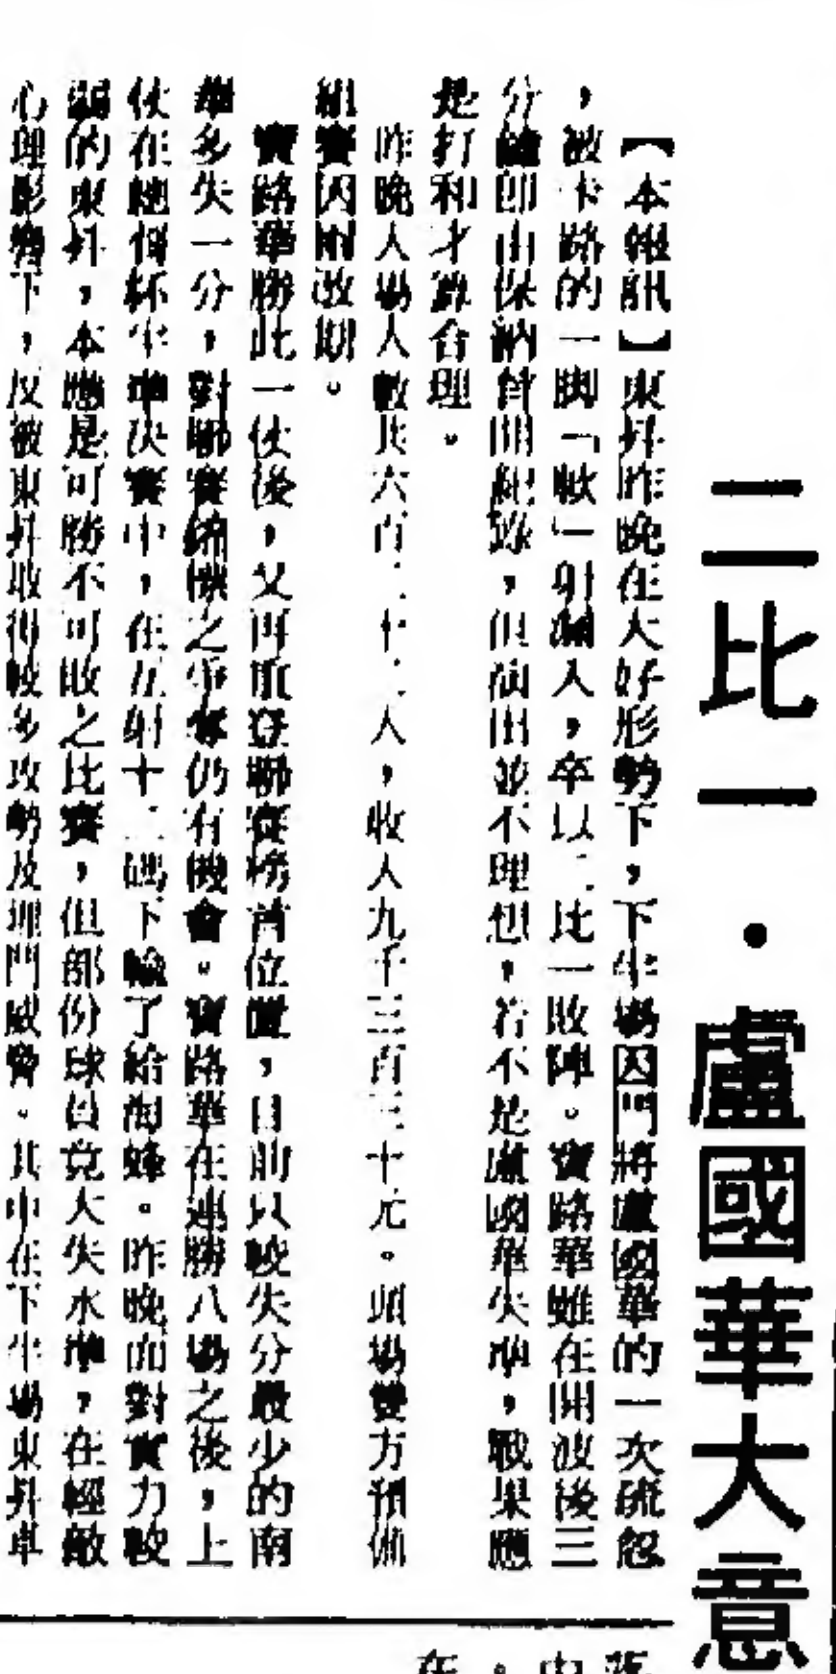 二比一·盧國華大意
【本報訊】東昇昨晚在大好形勢下，下半場因門將盧國華的一次疏忽
，被卡路的一脚「軟」射漏入，卒以二比一敗陣。寶路華雖在開波後三
分鐘即由保納首開紀錄，但演出並不理想，若不是盧國華失準，戰果應
是打和才算合理。
昨晚入場人數共六百二十二人，收入九千三百三十元。頭場雙方預備
組賽因雨改期。
寶路華勝此一仗後，又再重登聯賽榜首位置，目前只較失分最少的南
華多失一分，對聯賽錦標之爭奪仍有機會。寶路華在連勝八場之後，上
仗在總督杯半準決賽中，在互射十二碼下輸了給海蜂。昨晚面對實力較
弱的東昇，本應是可勝不可敗之比賽，但部份球員竟大失水準，在輕敵
心理影響下，反被東昇取得較多攻勢及埋門威脅。其中在下半場東昇卓